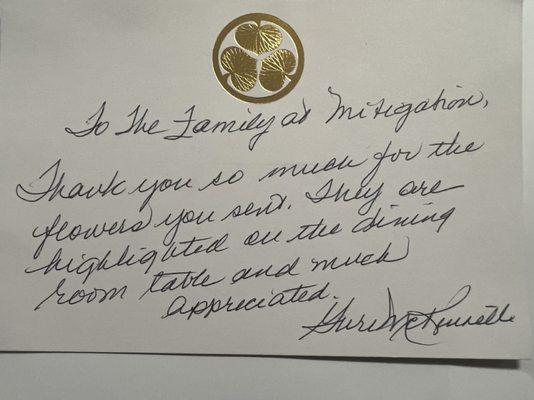 To The Family at Mitigation,
Thank you so much for the
flowers you sent. They are
highlighted on the dining
room table and much
appreciated.